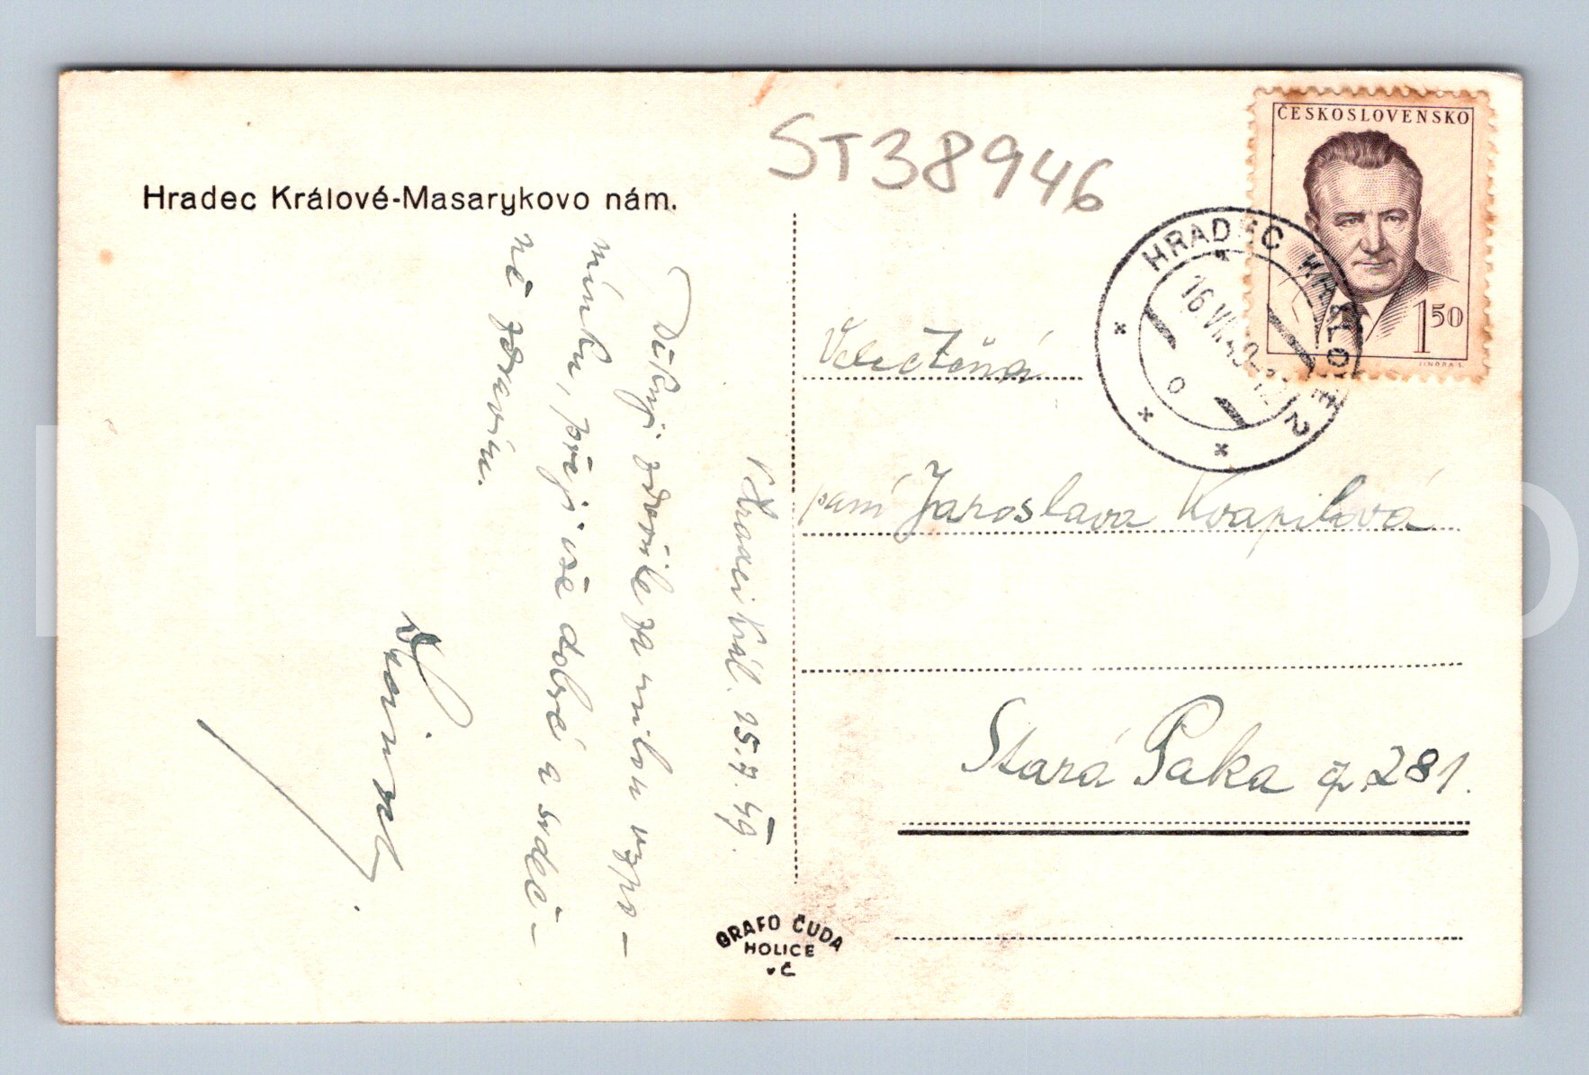 ST38946
ČESKOSLOVENSKO
150
Hradec Králové-Masarykovo nám.
HRADEC KRÁLOVÉ 2
16 VII 49
Velectěná
paní Jaroslava Kvapilová
Stará Paka čp. 281.
V Hradci Král. 15.7.49.
Děkuji zdvořile za milou vzpo-
mínku, přeji vše dobré a srdeč-
ně zdravím.
GRAFO ČUDA
HOLICE
v Č